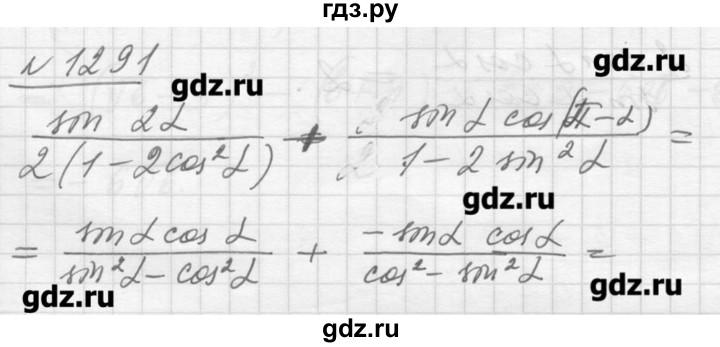 гдз.ру
№ 1291
gdz.ru
gdz.ru
sin 2α / 2(1 - 2cos²α) + sin α cos(π - α) / 1 - 2 sin²α =
gdz.ru
= sin α cos α / sin²α - cos²α + -sin α cos α / cos² - sin²α =
gdz.ru
gdz.ru
gdz.ru